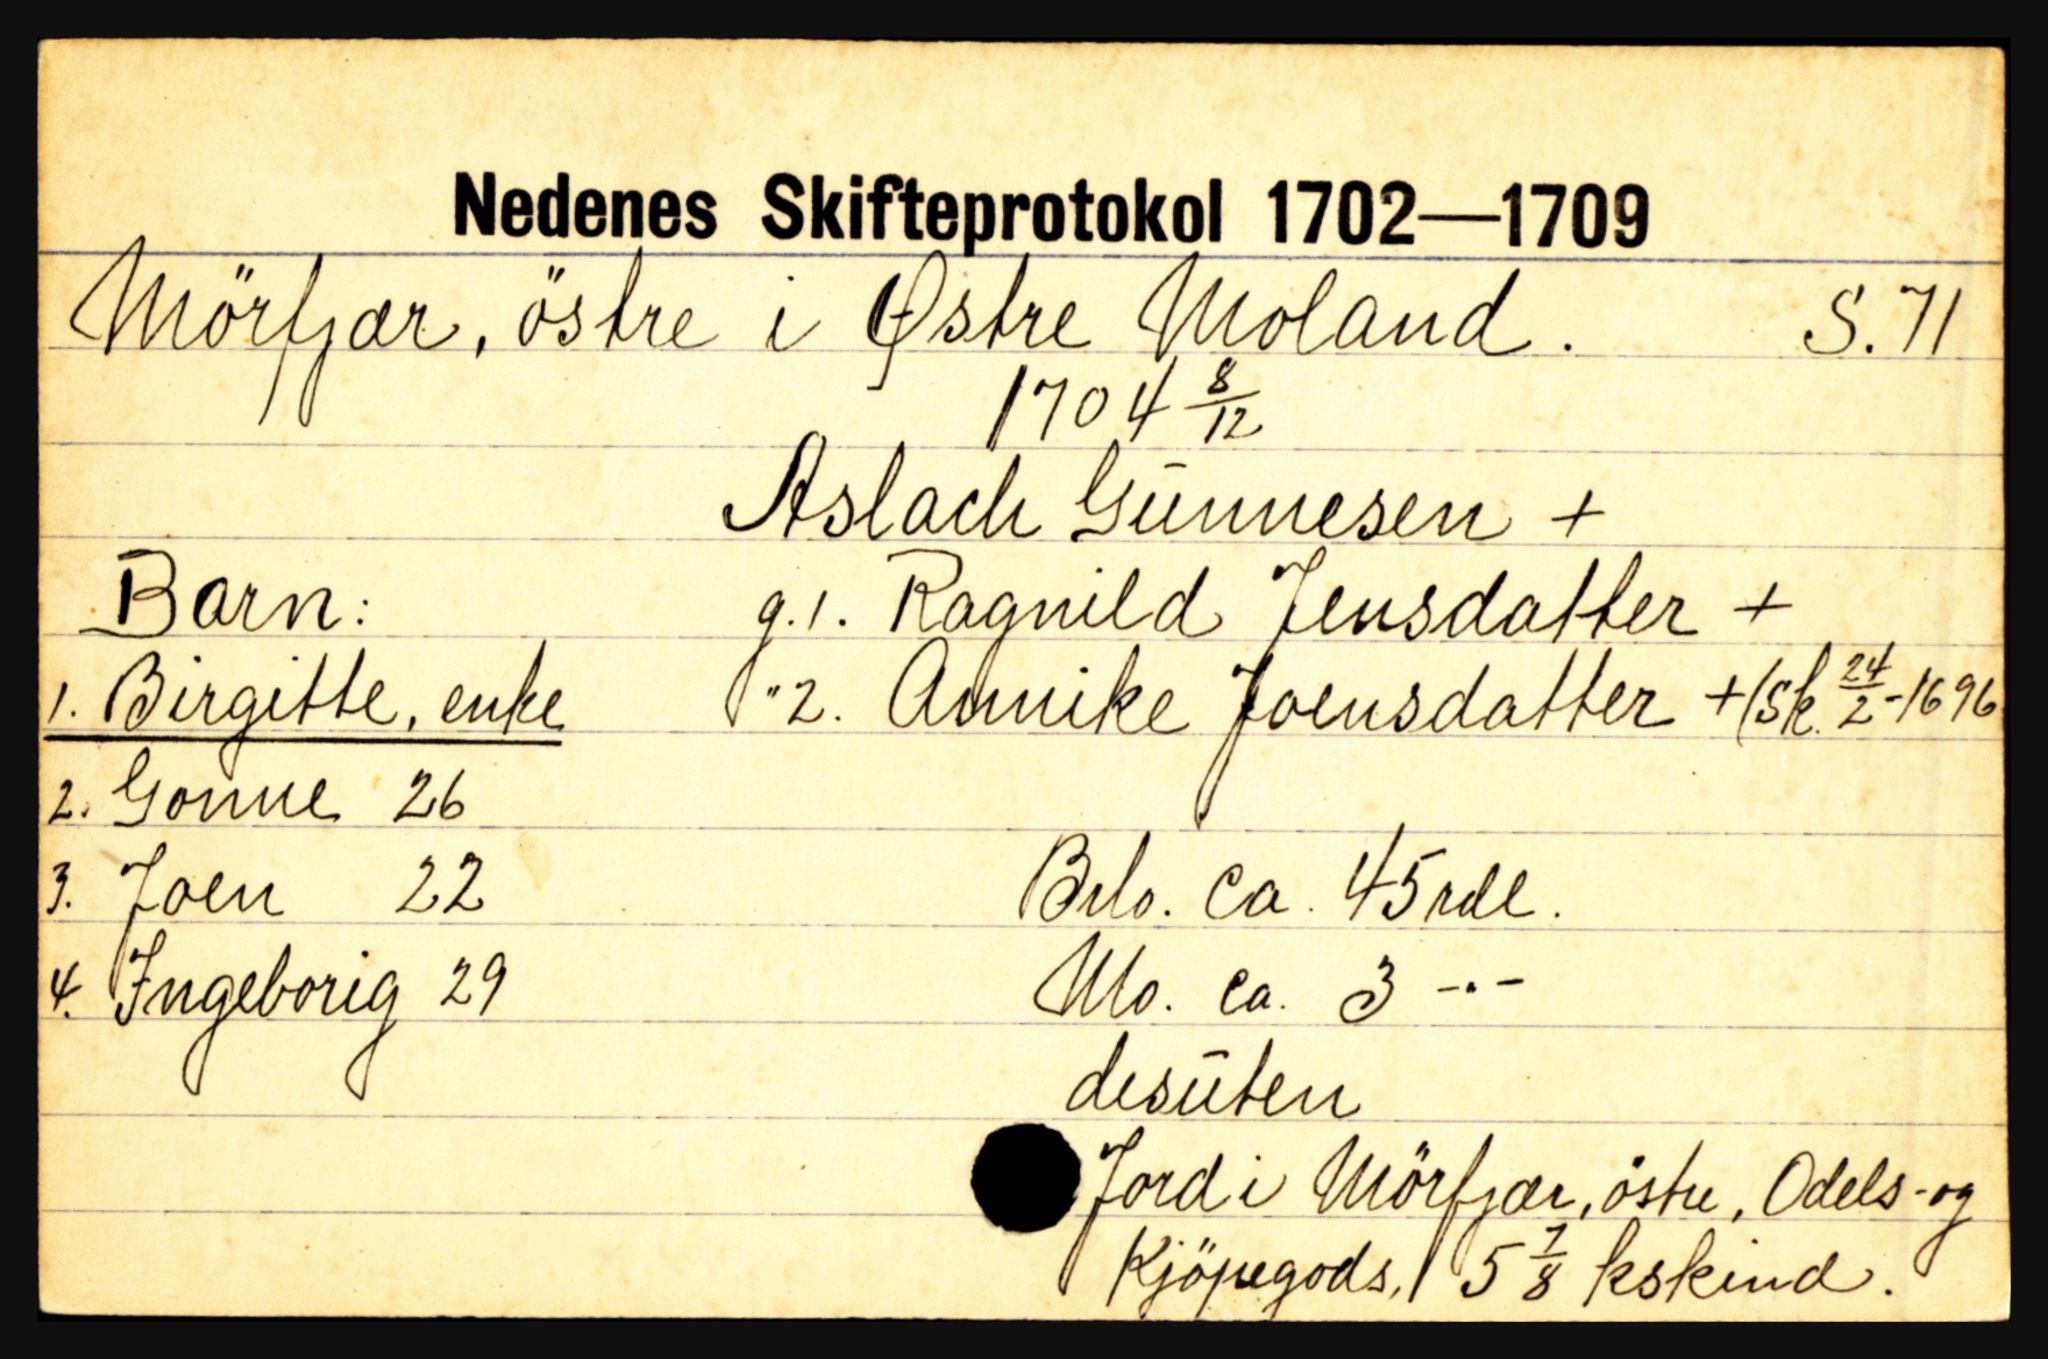 Nedenes Skifteprotokol 1702—1709
Mörfjær, östre i Østre Moland. S. 71
1704 8/12
Aslach Gūnnesen +
Barn: g. 1. Ragnild Jensdatter +
1. Birgitte, enke " 2. Annike Joensdatter + (Sk. 24/2-1696
2. Gonne 26
3. Joen 22 Brlo. ca. 45 rdl.
4. Ingeborig 29 Mo. ca. 3 -"-
desūten
Jord i Mörfjær, östre, Odels- og
Kjöpegods, 5 7/8 kskind.